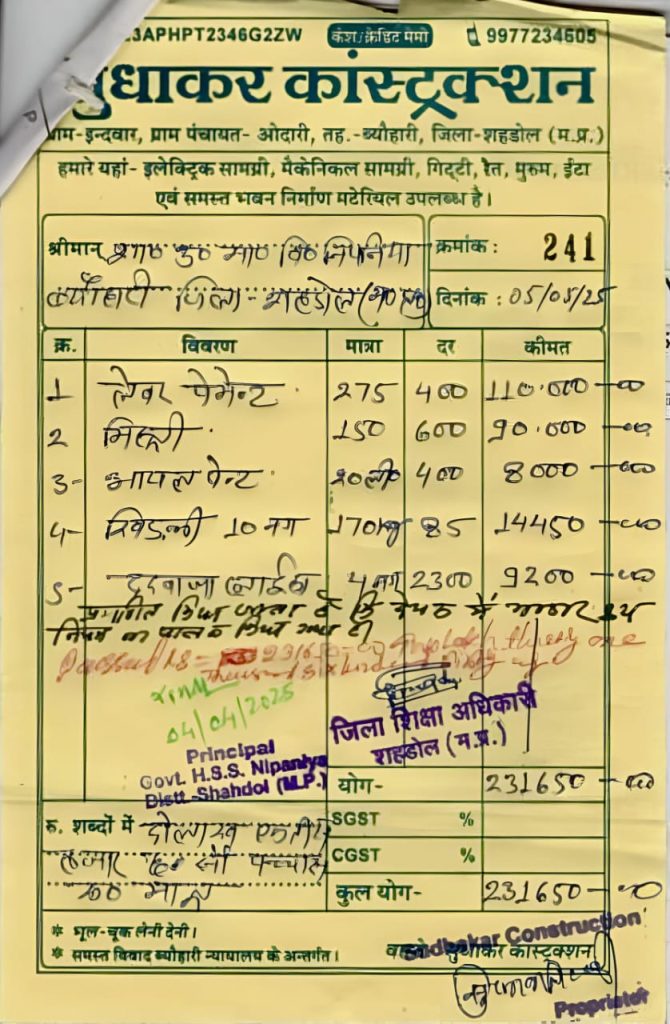 23APHPT2346G2ZW कैश/क्रेडिट मेमो 9977234605
सुधाकर कांस्ट्रक्शन
ग्राम-इन्दवार, ग्राम पंचायत- ओदारी, तह.-ब्यौहारी, जिला-शहडोल (म.प्र.)
हमारे यहां- इलेक्ट्रिक सामग्री, मैकेनिकल सामग्री, गिट्टी, रेत, मुरूम, ईटा
एवं समस्त भवन निर्माण मटेरियल उपलब्ध है।
श्रीमान् शा० उ० मा० वि० निपनिया क्रमांक : 241
ब्यौहारी जिला- शहडोल (म०प्र०) दिनांक : 05/05/25
क्र. विवरण मात्रा दर कीमत
1 लेबर पेमेन्ट 275 400 110.000 -00
2 मिस्त्री 150 600 90.000 -00
3- आयल पेन्ट 20ली० 400 8000 -00
4- खिडकी 10 नग 170kg 85 14450 -00
5- दरवाजा 4 नग 2300 9200 -00
प्रमाणित किया जाता है कि में
नियम का पालन किया गया है।
Passed Rs = 231650=00 thirty one
Thousand six hundred fifty
04/04/2025
Principal
Govt. H.S.S. Nipaniya
Distt-Shahdol (M.P.)
जिला शिक्षा अधिकारी
शहडोल (म.प्र.)
योग- 231650 -00
SGST %
CGST %
रु. शब्दों में दो लाख एकतीस
हजार छः सौ पच्चास
रु० मात्र
कुल योग- 231650 -00
* भूल-चूक लेनी देनी।
* समस्त विवाद ब्यौहारी न्यायालय के अन्तर्गत।
वास्ते सुधाकर कांस्ट्रक्शन
Sudhakar Construction
Proprietor